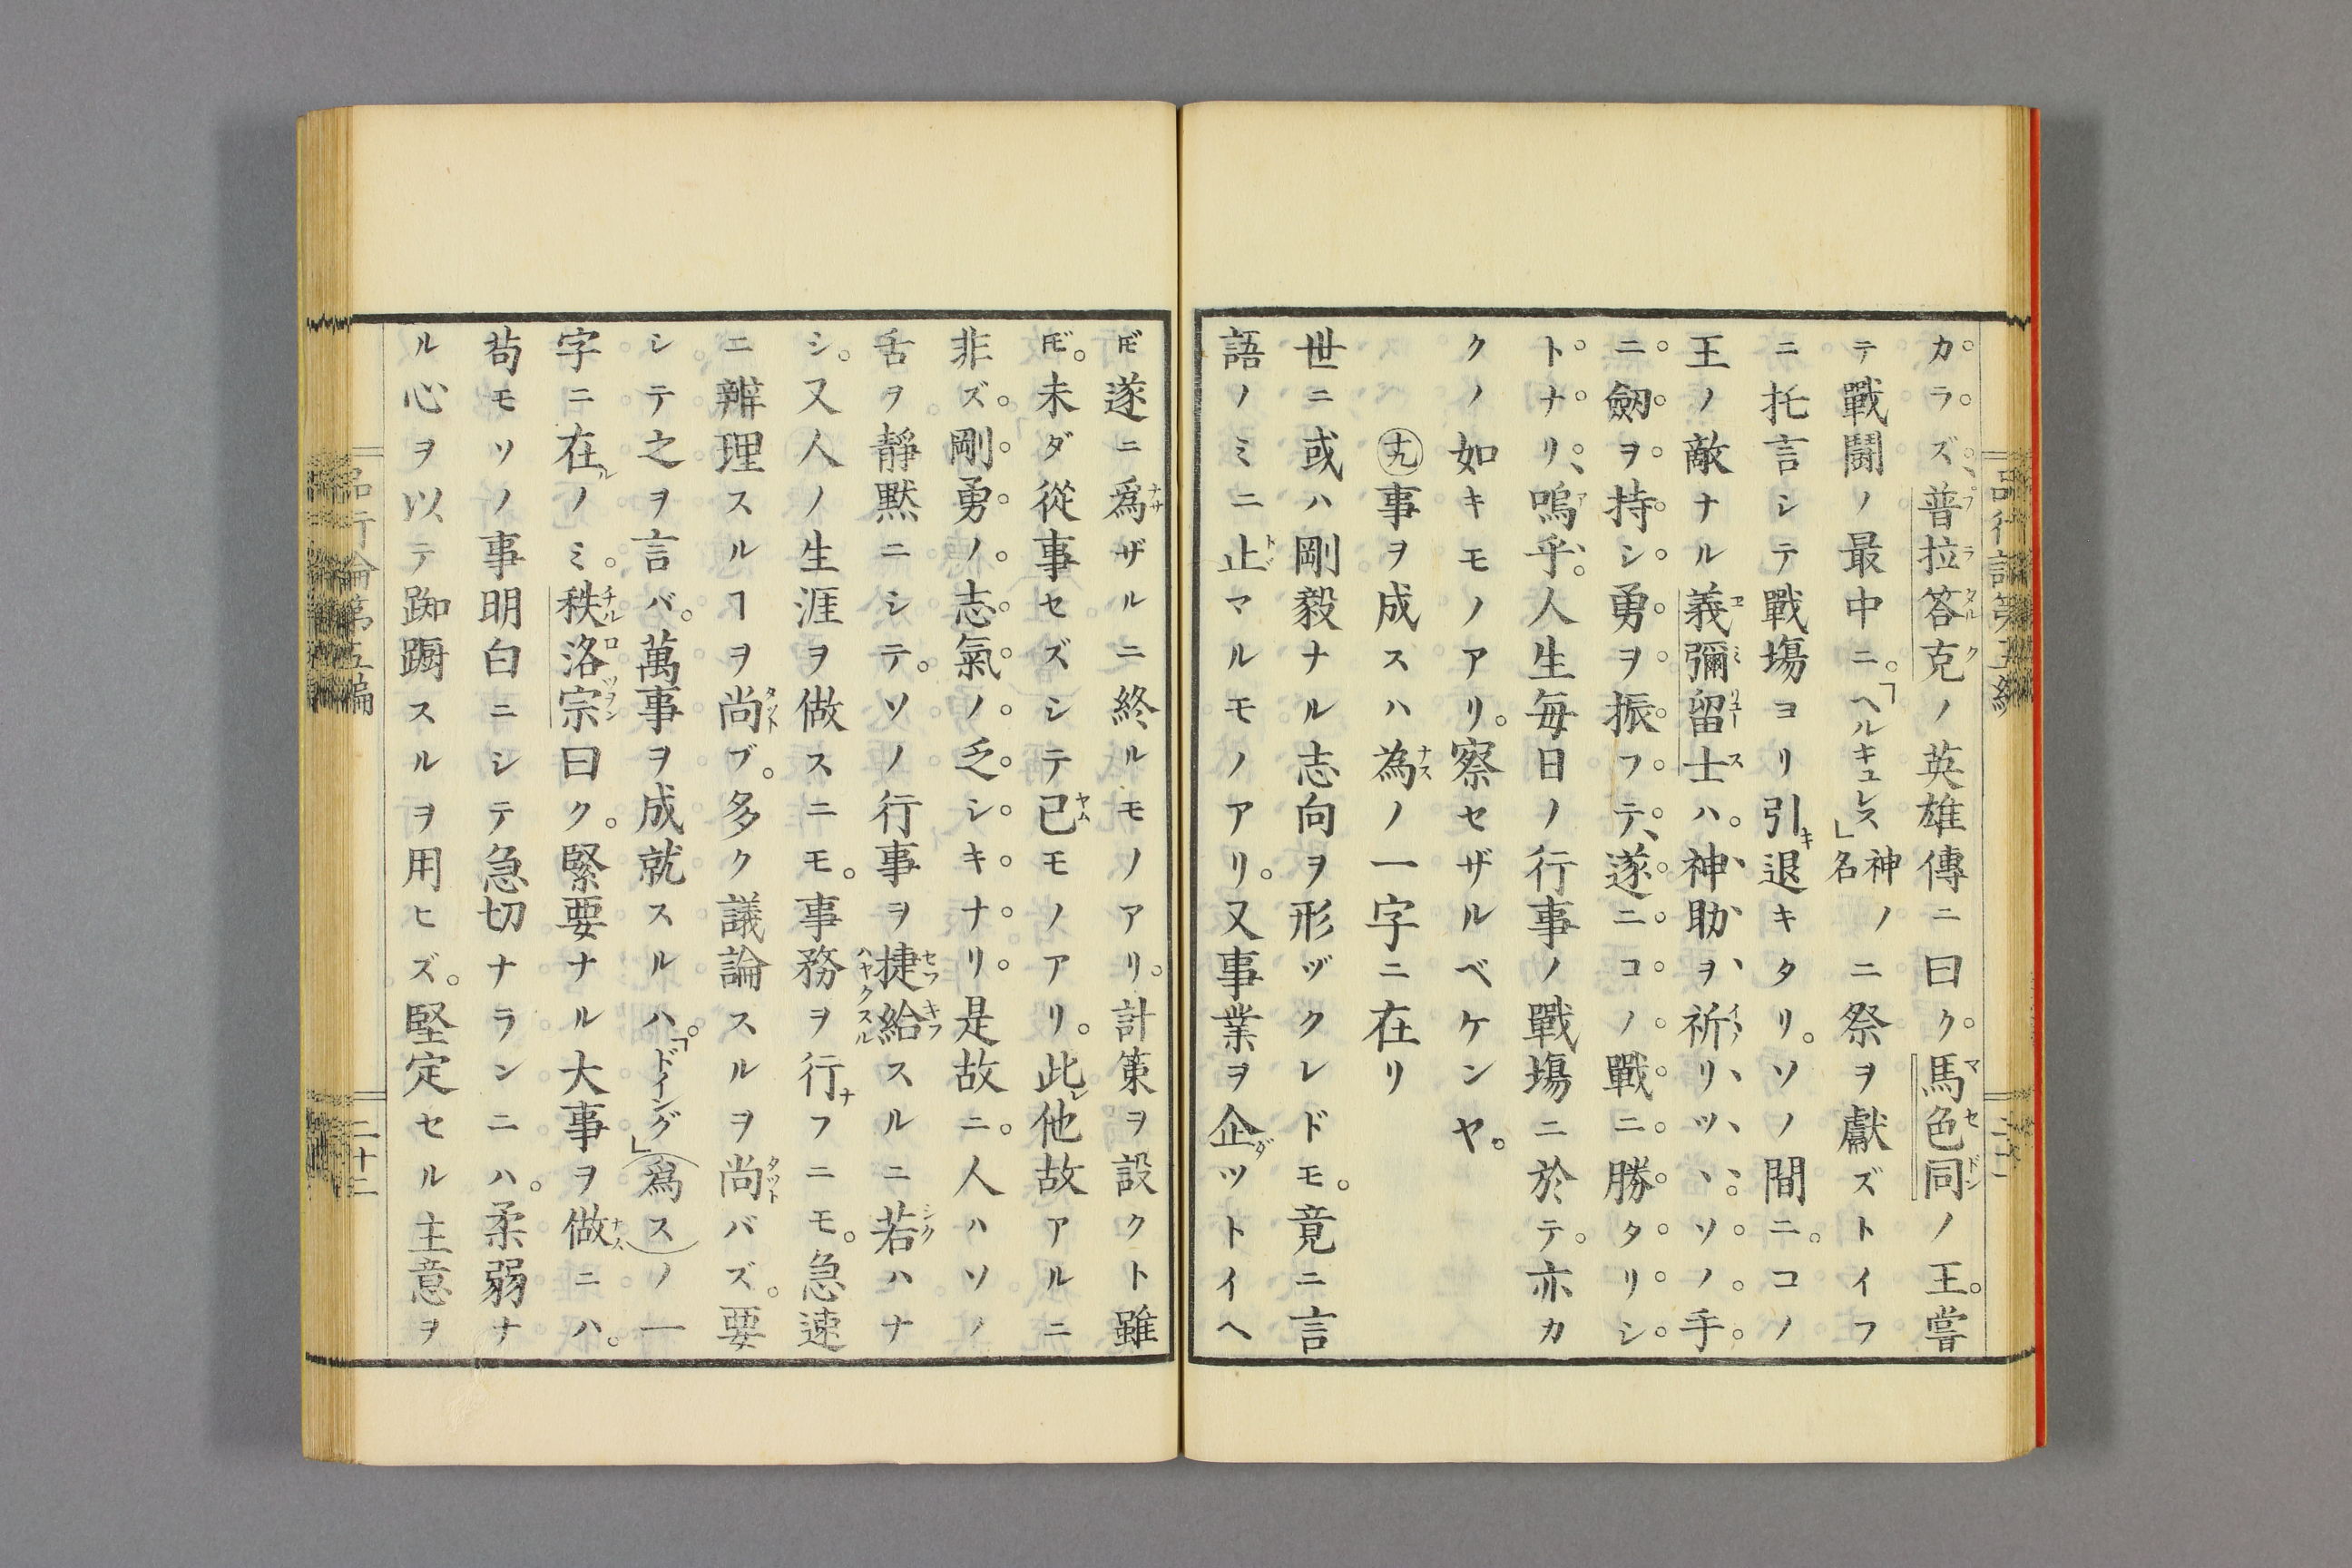 カラズ、普拉答克ノ英雄傳ニ曰ク。馬色同ノ王。嘗
テ戰鬪ノ最中ニ。「ヘルキュレス」神名ノニ祭ヲ獻ズトイフ
ニ托言シテ戰塲ヨリ引退キタリ。ソノ間ニ。コノ
王ノ敵ナル義彌留士ハ。神助ヲ祈リツヽ。ソノ手
ニ劒ヲ持シ勇ヲ振フテ、遂ニコノ戰ニ勝タリシ
トナリ、嗚乎。人生每日ノ行事ノ戰塲ニ於テ。亦カ
クノ如キモノアリ。察セザルベケンヤ。
十九 事ヲ成スハ為ノ一字ニ在リ
世ニ或ハ剛毅ナル志向ヲ形ヅクレドモ。竟ニ言
語ノミニ止マルモノアリ。又事業ヲ企ツトイヘ
𪜈遂ニ爲ザルニ終ルモノアリ。計策ヲ設クト雖
𪜈。未ダ從事セズシテ已モノアリ。此他故アルニ
非ズ。剛勇ノ志氣ノ乏シキナリ。是故ニ。人ハソノ
舌ヲ靜黙ニシテ。ソノ行事ヲ捷給スルニ若ハナ
シ。又人ノ生涯ヲ做スニモ。事務ヲ行フニモ。急速
ニ辨理スルヿヲ尚ブ。多ク議論スルヲ尚バズ。要
シテ之ヲ言バ。萬事ヲ成就スルハ。「ドイング」(爲ス)ノ一
字ニ在ルノミ。秩洛宗曰ク。緊要ナル大事ヲ做ニハ。
苟モソノ事明白ニシテ急切ナランニハ。柔弱ナ
ル心ヲ以テ踟蹰スルヲ用ヒズ。堅定セル主意ヲ
品行論第五編
二十二